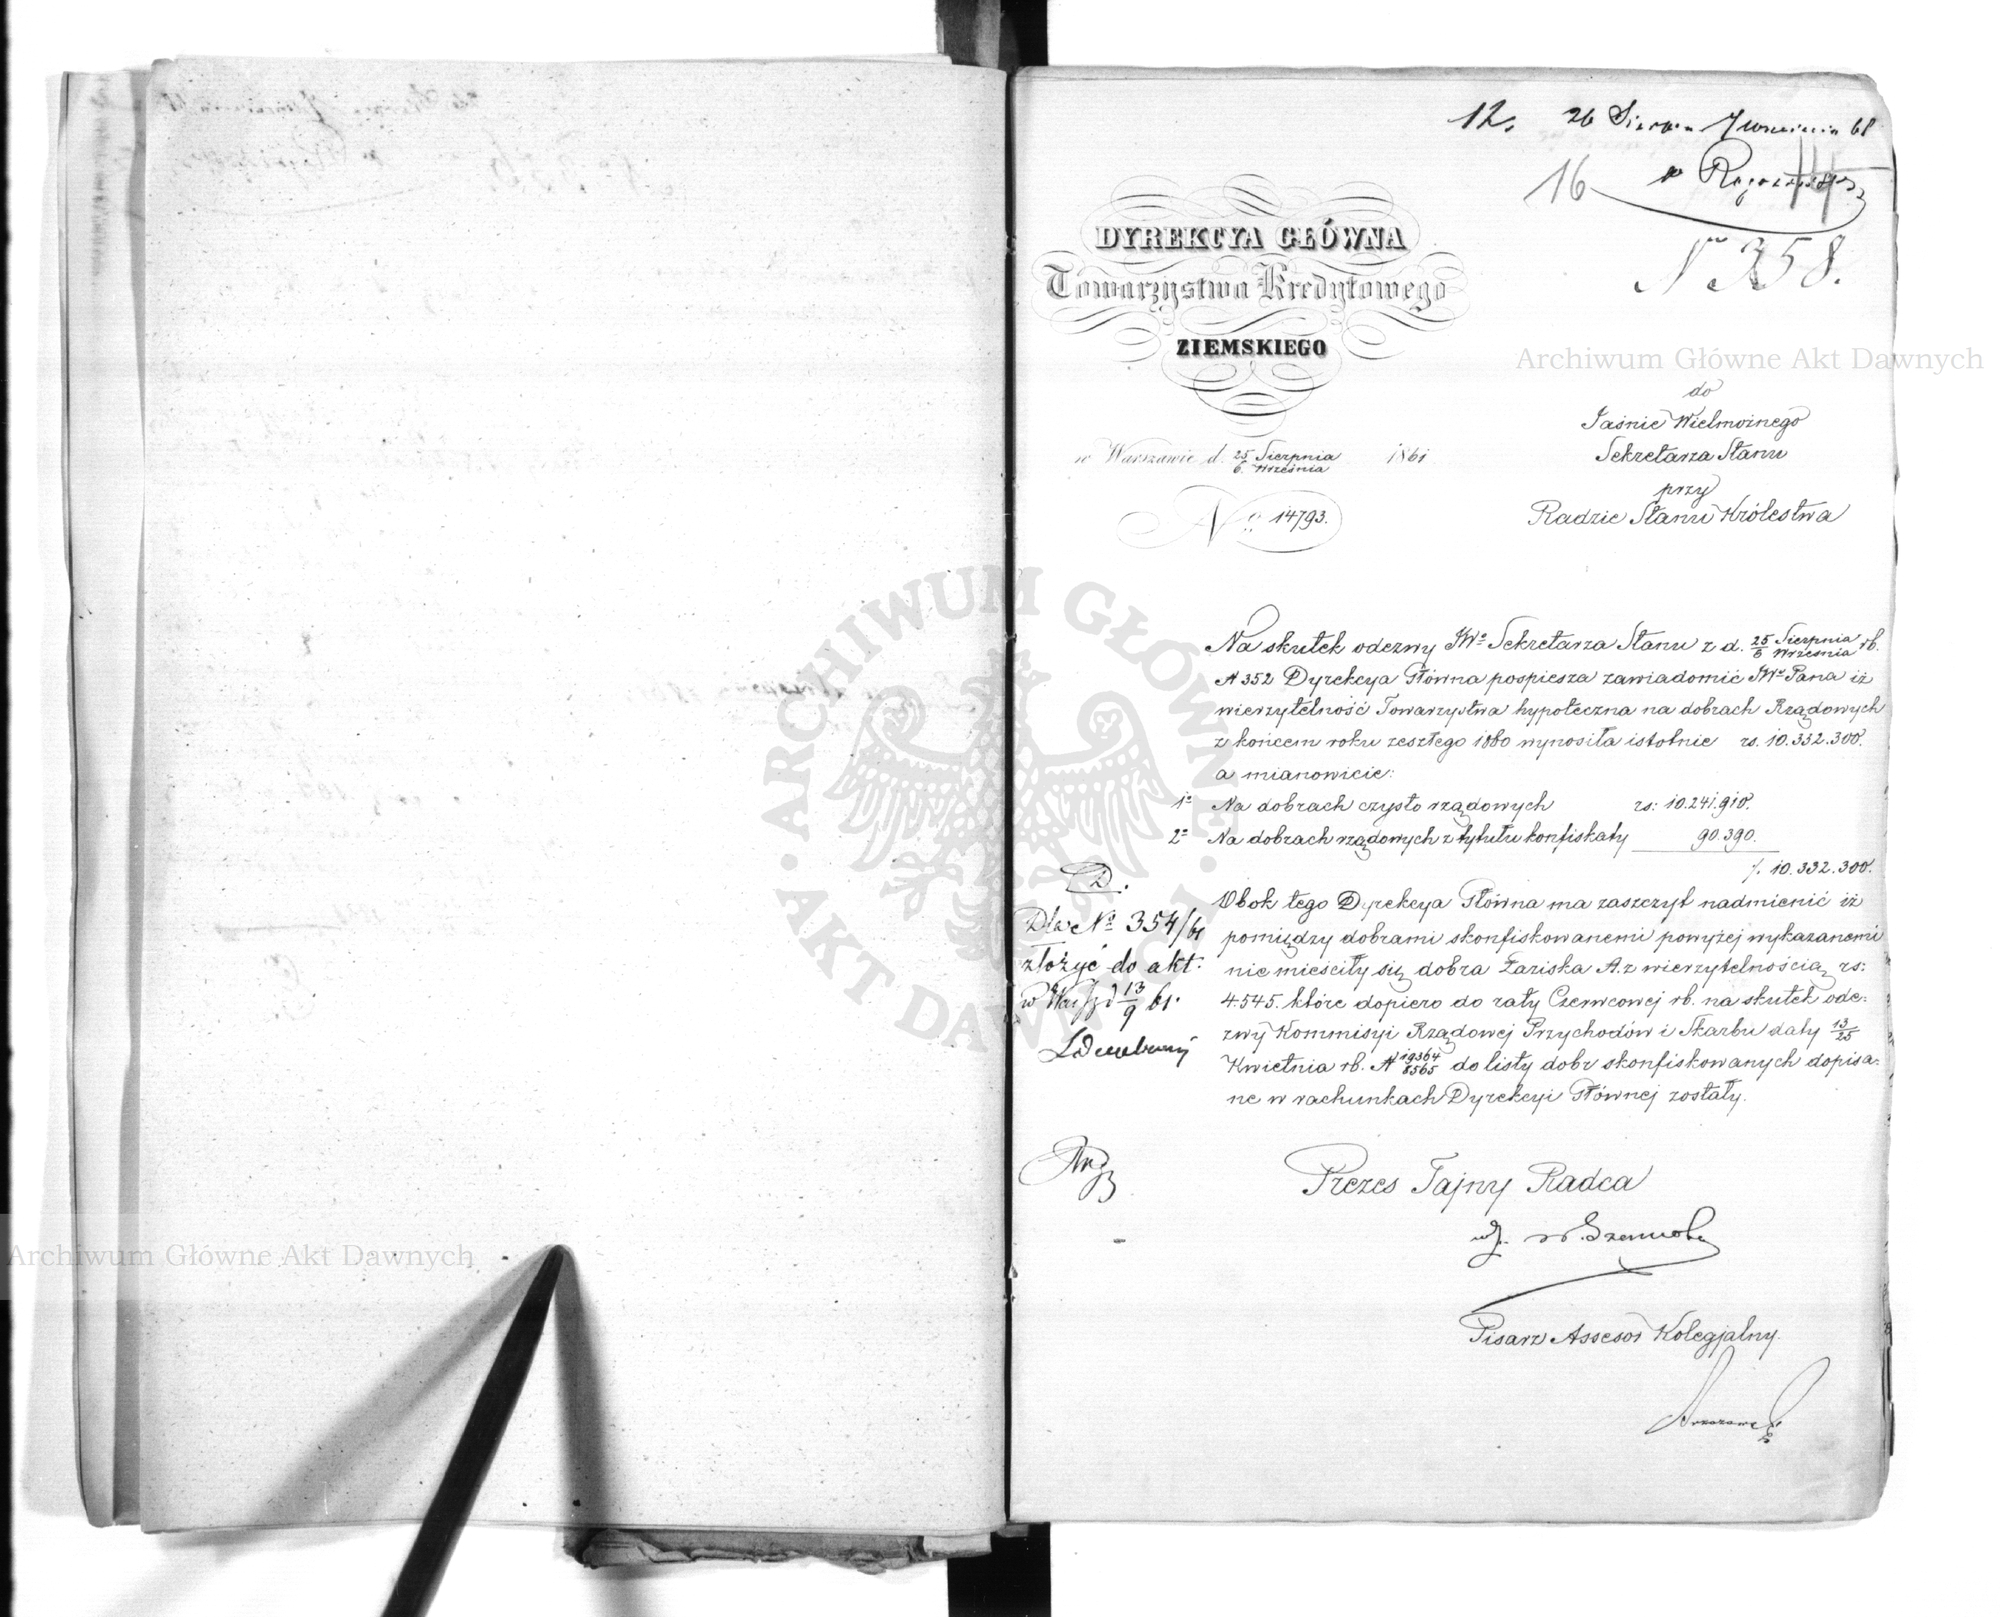 12. 26 Sierpn 7 Września 61
16
N 358.
DYREKCYA GŁÓWNA
Towarzystwa Kredytowego
ZIEMSKIEGO
Archiwum Główne Akt Dawnych
w Warszawie d. 25 Sierpnia / 6 Września 1861
No 14793.
do
Jaśnie Wielmożnego
Sekretarza Stanu
przy
Radzie Stanu Królestwa
Na skutek odezwy JWo Sekretarza Stanu z d. 25 Sierpnia / 6 Września rb.
N 352 Dyrekcya Główna pospiesza zawiadomić JWo Pana iż
wierzytelność Towarzystwa hypoteczna na dobrach Rządowych
z końcem roku zeszłego 1860 wynosiła istotnie rs. 10.332.300.
a mianowicie:
1o Na dobrach czysto rządowych rs: 10.241.910.
2o Na dobrach rządowych z tytułu konfiskaty 90.390.
/. 10.332.300.
Obok tego Dyrekcya Główna ma zaszczyt nadmienić iż
pomiędzy dobrami skonfiskowanemi powyżej wykazanemi
nie mieściły się dobra Łaziska A. z wierzytelnością rs:
4.545. które dopiero do raty Czerwcowej rb. na skutek ode-
zwy Kommisyi Rządowej Przychodów i Skarbu daty 13/25
Kwietnia rb. N 19364/8565 do listy dobr skonfiskowanych dopisa-
ne w rachunkach Dyrekcyi Głównej zostały.
D.
Dla No 354/61
złożyć do akt.
13/9 61.
Prezes Tajny Radca
Pisarz Assesor Kolegjalny.
ARCHIWUM GŁÓWNE AKT DAWNYCH
Archiwum Główne Akt Dawnych